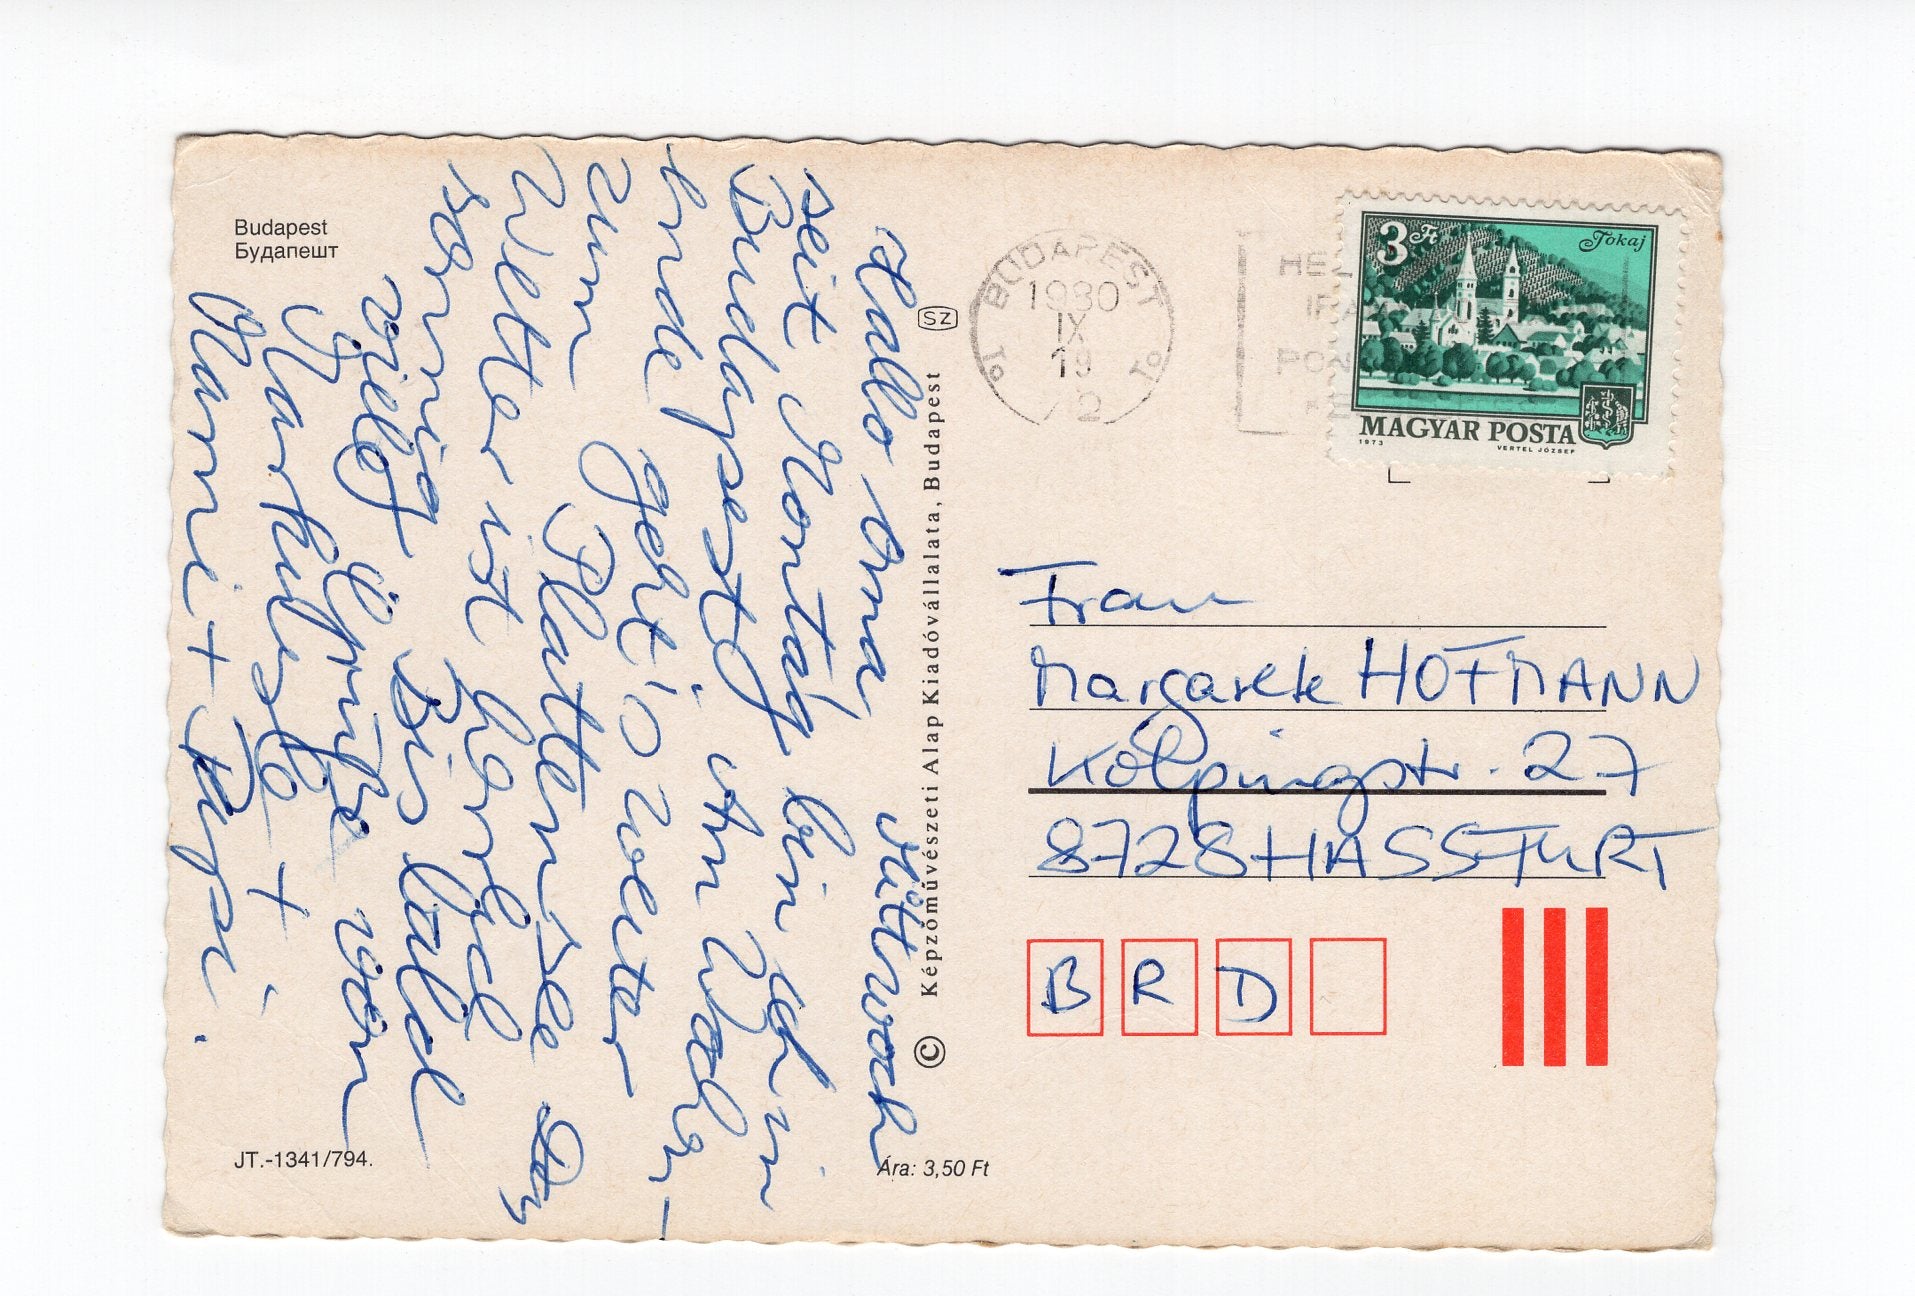 Budapest
Будапешт
Hallo Oma, Mittwoch
seit Montag bin ich in
Budapest. Am Woch-
ende geht's weiter
zum Plattensee. Das
Wetter ist herrlich
sonnig. Bis bald
viele Grüße von
Markus +
Manni + Pepi.
JT.-1341/794.
SZ
© Képzőművészeti Alap Kiadóvállalata, Budapest
Ára: 3,50 Ft
BUDAPEST
1980
IX
19
3 Ft
Tokaj
MAGYAR POSTA
1973
VERTEL JÓZSEF
Frau
Margarete HOFMANN
Kolpingstr. 27
8728 HASSFURT
B R D